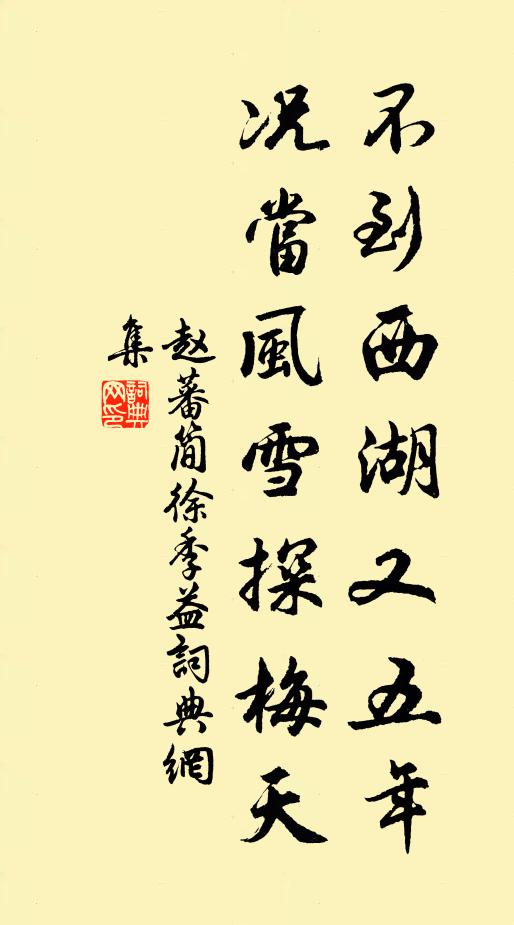 不到西湖又五年
况當風雪探梅天
赵蕃简徐季益詞典網
集
詞典网印